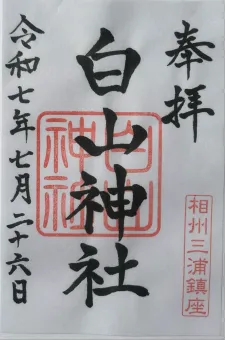 奉拝
相州三浦鎮座
白山神社
白山神社
令和七年七月二十六日